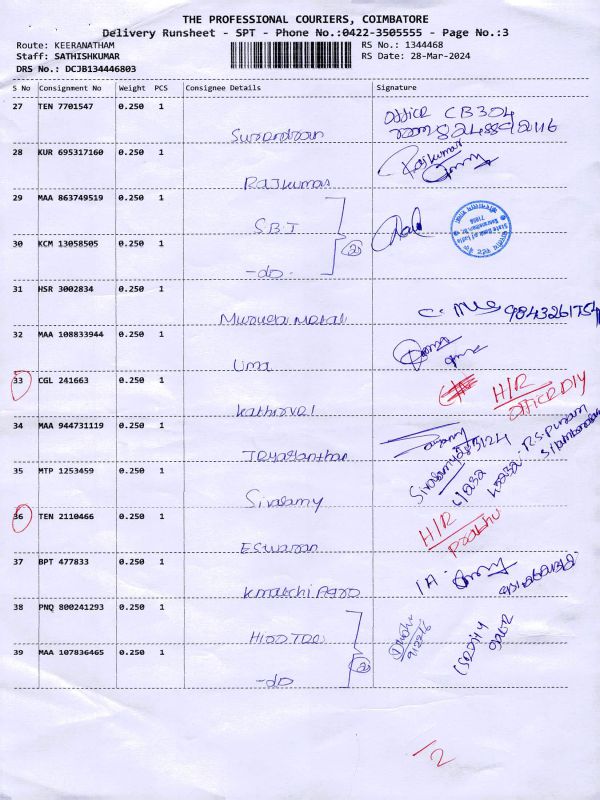 THE PROFESSIONAL COURIERS, COIMBATORE
Delivery Runsheet - SPT - Phone No.:0422-3505555 - Page No.:3
Route: KEERANATHAM RS No.: 1344468
Staff: SATHISHKUMAR RS Date: 28-Mar-2024
DRS No.: DCJB134446803
S No Consignment No Weight PCS Consignee Details Signature
27 TEN 7701547 0.250 1 office CB304
Surendran
28 KUR 695317160 0.250 1 Rajkumar
Rajkumar
29 MAA 863749519 0.250 1
S.B.I
30 KCM 13058505 0.250 1 (2)
-do-
State Bank of India
31 HSR 3002834 0.250 1
Muruga Metal 9843261754
32 MAA 108833944 0.250 1
Uma
33 CGL 241663 0.250 1 H/R
Kathirvel office DIY
34 MAA 944731119 0.250 1
Jeyaganthan
35 MTP 1253459 0.250 1 R.S. Puram
Sivasamy
36 TEN 2110466 0.250 1 H/R
Eswaran Prabhu
37 BPT 477833 0.250 1
Kmatchi Agro
38 PNQ 800241293 0.250 1
39 MAA 107836465 0.250 1 (2)
-do
2